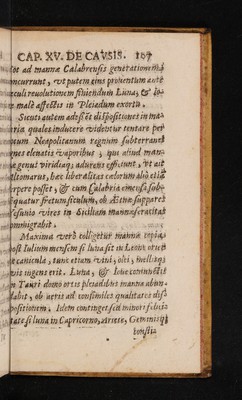 CAP. XV. DE CAVSIS. 107
ad mannæ Calabrensis generationem
concurrunt, vt putem eius prouentum ante
seculi reuolutionem finiendum Luna, & lo-
malè affectis in Pleiadum exortu.
Sicuti autem adesset dispositiones in ma-
teria quales inducere videntur tentare per
totum Neapolitanum regnum subterranei
ignes eleuatis vaporibus, qui aliud man-
næ genus viridiaq; adurens efficiunt, vt ait
Altomarus, hæc liberalitas cælorum aliò eli
perpere posset, & cum Calabria eiusq; sobo-
sequatur fretum siculum, ob Aetnæ suppares
Vesuuio vires in Siciliam mannæ feracitas
commigrabit.
Maxima verò colligetur mannæ copia
post Iulium mensem si luna sit in Leonis ortu
canicula, tunc etiam vini, olei, mellisq;
vis ingens erit. Luna, & Ioue coniunctis
in Tauri domo ortis pleiadibus manna abun-
dabit, ob aeris ad consimiles qualitates dispo
positionem. Idem continget sed minori felici
tate si luna in Capricorno, Ariete, Geminisq;
consti